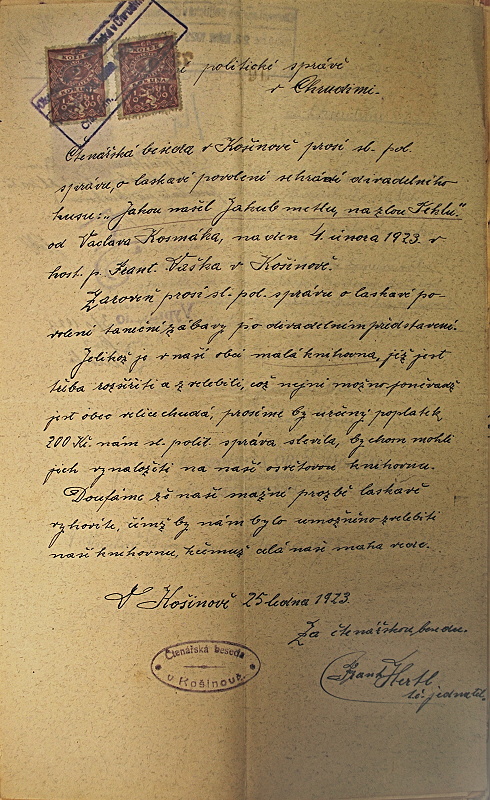 politické správě
v Chrudimi.
Čtenářská beseda v Košinově prosí sl. pol.
správu o laskavé povolení sehrání divadelního
kusu: "Jakou našel Jakub metlu, na zlou Théklu."
od Václava Kosmáka, na den 4. února 1923 v
host. p. Frant. Vaška v Košinově.
Zároveň prosí sl. pol. správu o laskavé po-
volení taneční zábavy po divadelním představení.
Jelikož je v naší obci malá knihovna, již jest
třeba rozšířiti a zvelebiti, což nejní možno poněvadž
jest obec velice chudá, prosíme by určený poplatek
200 Kč. nám sl. polit. správa slevila, bychom mohli
jich vynaložiti na naší osvětovou knihovnu.
Doufáme že naší prozbě laskavě
vyhovíte, čímž by nám bylo umožněno zvelebiti
naší knihovnu, k čemuž celá naše snaha vede.
V Košinově 25 ledna 1923.
Za čtenářskou besedu.
Čtenářská beseda
v Košinově
Frant Hertl
t.č. jednatel.